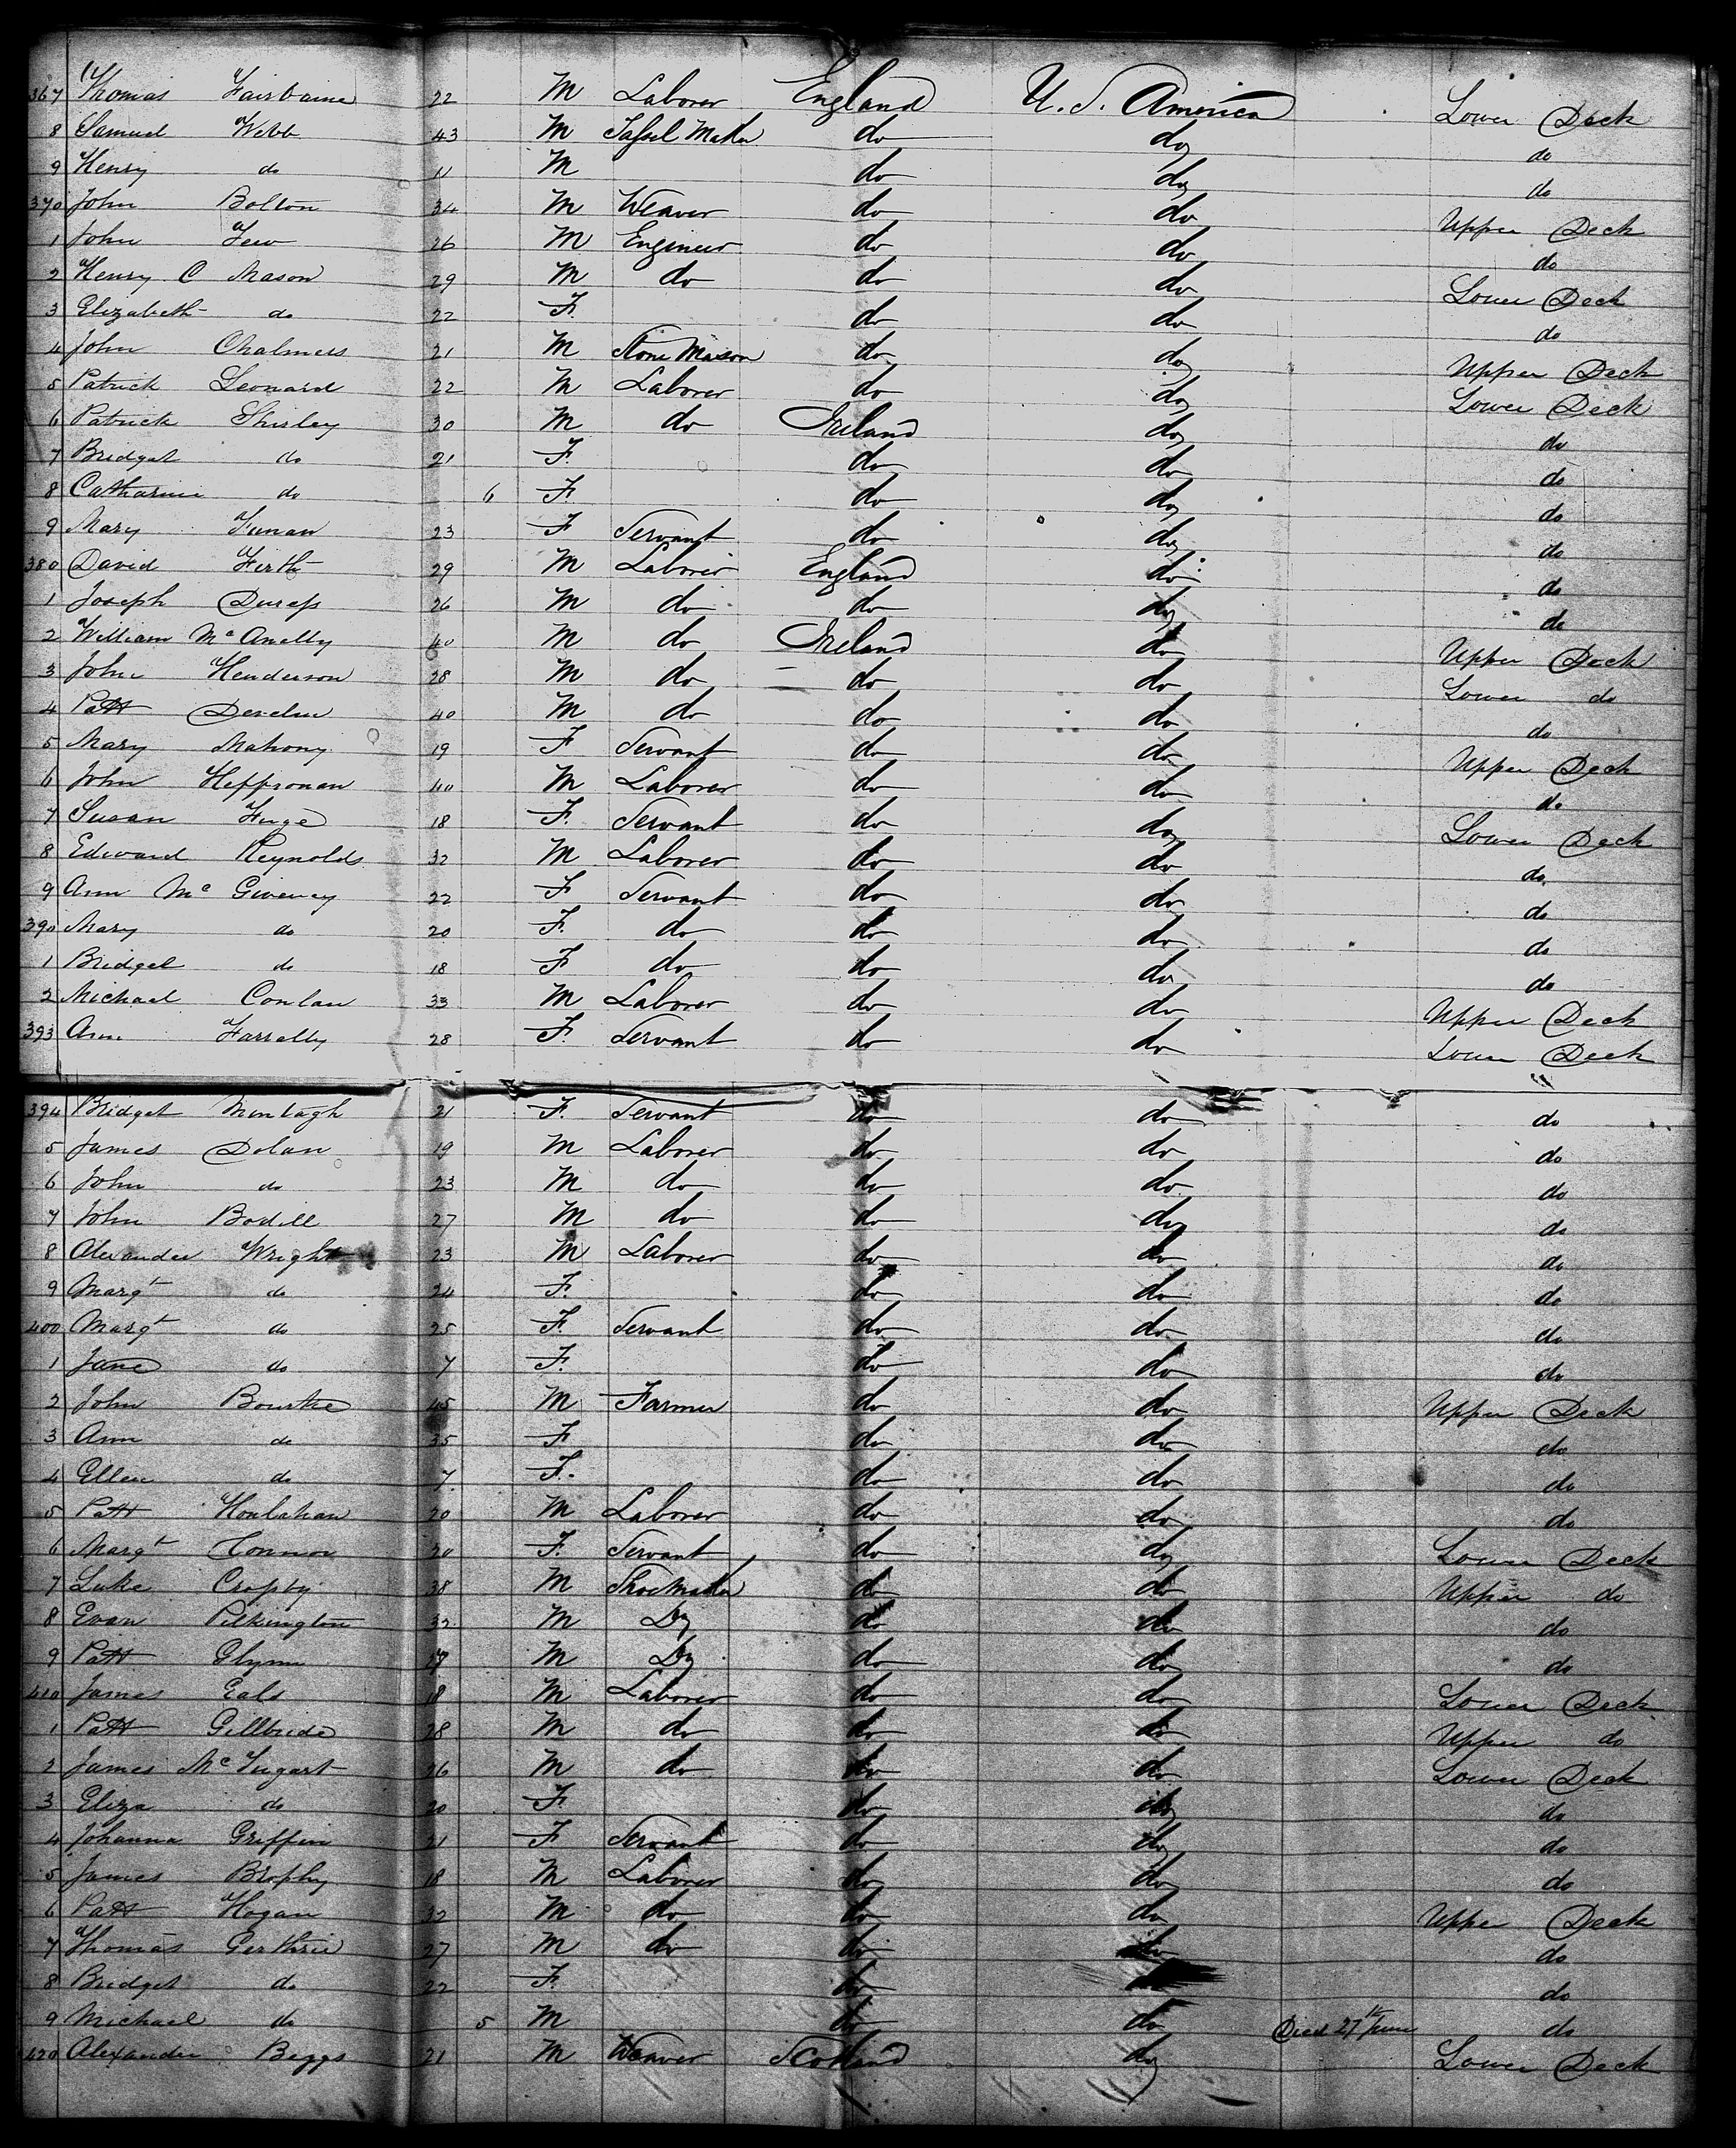 367 Thomas Fairbairne 22 M Laborer England U. S. America Lower Deck
8 Samuel Webb 43 M Tassel Maker do do do
9 Henry do 11 M do do do
370 John Bolton 34 M Weaver do do Upper Deck
1 John Few 26 M Engineer do do do
2 Henry C Mason 29 M do do do Lower Deck
3 Elizabeth do 22 F. do do do
4 John Chalmers 21 M Stone Mason do do Upper Deck
5 Patrick Leonard 22 M Laborer do do Lower Deck
6 Patrick Shirley 30 M do Ireland do do
7 Bridget do 21 F. do do do
8 Catharine do 6 F. do do do
9 Mary 23 F Servant do do do
380 David Firth 29 M Laborer England do do
1 Joseph Duress 26 M do do do do
2 William Mc Anelly 40 M do Ireland do Upper Deck
3 John Henderson 28 M do do do Lower do
4 Patt Develin 40 M do do do do
5 Mary Mahony 19 F Servant do do Upper Deck
6 John Heffronan 40 M Laborer do do do
7 Susan 18 F. Servant do do Lower Deck
8 Edward Reynolds 32 M Laborer do do do
9 Ann Mc Giveney 22 F Servant do do do
390 Mary do 20 F. do do do do
1 Bridget do 18 F do do do do
2 Michael Conlan 33 M Laborer do do Upper Deck
393 Ann Farrelly 28 F. Servant do do Lower Deck
394 Bridget Montagh 21 F. Servant do do do
5 James Dolan 19 M Laborer do do do
6 John do 23 M do do do do
7 John Bodill 27 M do do do do
8 Alexander Wright 23 M Laborer do do do
9 Margt do 24 F. do do do
400 Margt do 25 F. Servant do do do
1 Jane do 7 F. do do do
2 John Bourke 45 M Farmer do do Upper Deck
3 Ann do 35 F do do do
4 Ellen do 7. F. do do do
5 Patt Houlahan 20 M Laborer do do do
6 Margt Connor 20 F. Servant do do Lower Deck
7 Luke Crosby 38 M Shoe Maker do do Upper do
8 Evan Pilkington 32 M Do do do do
9 Patt Glynn 27 M Do do do do
410 James Eals 18 M Laborer do do Lower Deck
1 Patt Gillbride 28 M do do do Upper do
2 James Mc 26 M do do do Lower Deck
3 Eliza do 20 F. do do do
4 Johanna Griffin 21 F Servant do do do
5 James Brophy 18 M Laborer do do do
6 Patt Hogan 32 M do do do Upper Deck
7 Thomas Gerthrie 27 M do do do do
8 Bridget do 22 F. do do do
9 Michael do 5 M do do Died 27th June do
420 Alexander Beggs 21 M Weaver Scotland do Lower Deck